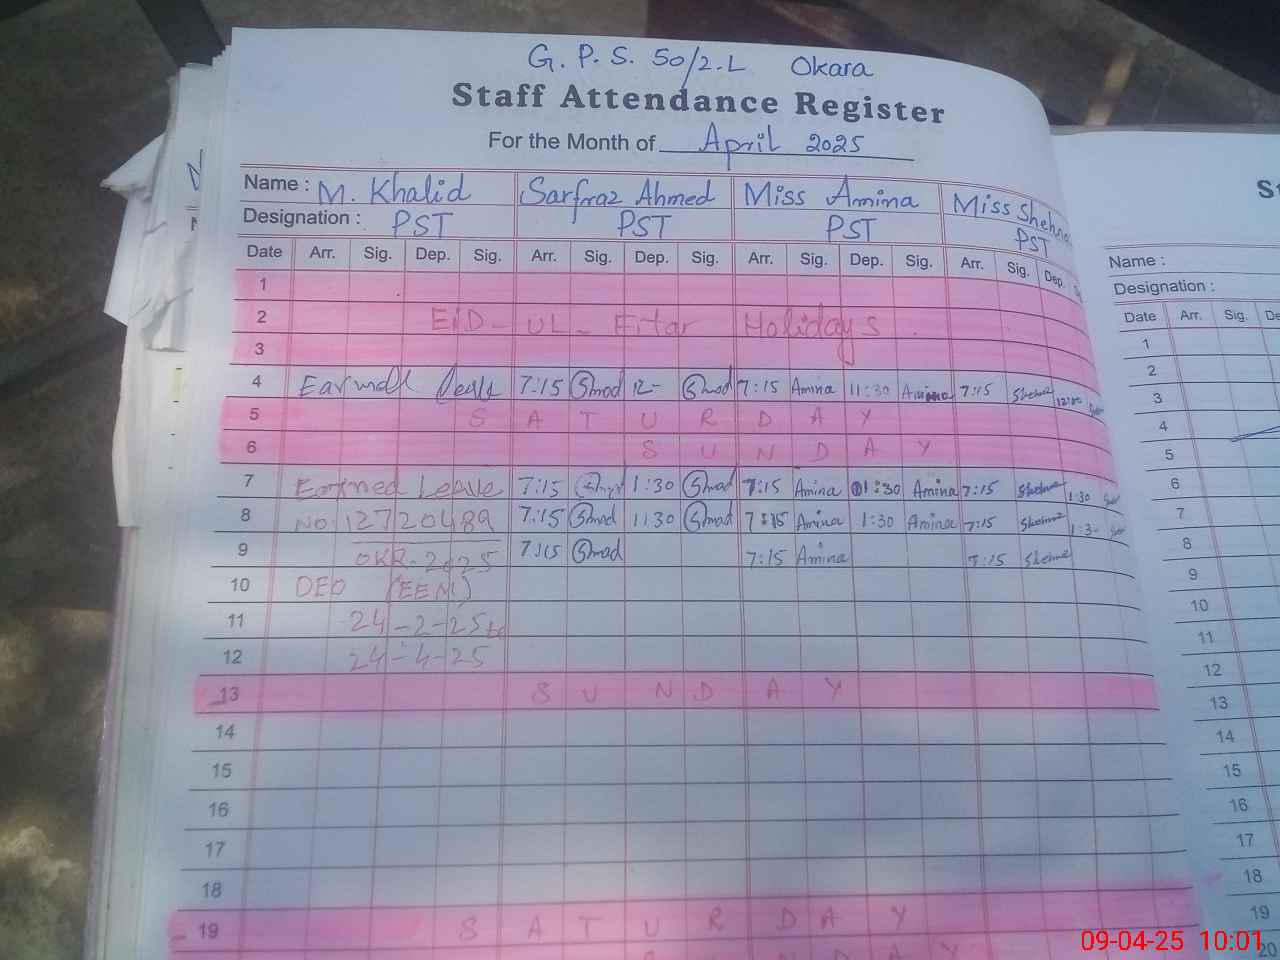 G. P. S. 50/2.L Okara
Staff Attendance Register
For the Month of April 2025
Name : M. Khalid Sarfraz Ahmed Miss Amina Miss
Designation : PST PST PST PST
Date Arr. Sig. Dep. Sig. Arr. Sig. Dep. Sig. Arr. Sig. Dep. Sig. Arr. Sig. Dep.
1
2 EID-UL-Fitar Holidays.
3
4 7:15 Smad 12- Smad 7:15 Amina 11:30 Amina 7:15 12:00
5 SATURDAY
6 SUNDAY
7 Earned Leave 7:15 1:30 Smad 7:15 Amina 1:30 Amina 7:15 1:30
8 No. 12720489 7:15 Smad 1130 Smad 7:15 Amina 1:30 Amina 7:15 1:3-
9 OKR-2025 7:15 Smad 7:15 Amina 7:15
10 DEO (EEM)
11 24-2-25 to
12 24-4-25
13 SUNDAY
14
15
16
17
18
19 SATURDAY
Name :
Designation :
Date Arr. Sig.
1
2
3
4
5
6
7
8
9
10
11
12
13
14
15
16
17
18
19
20
09-04-25 10:01